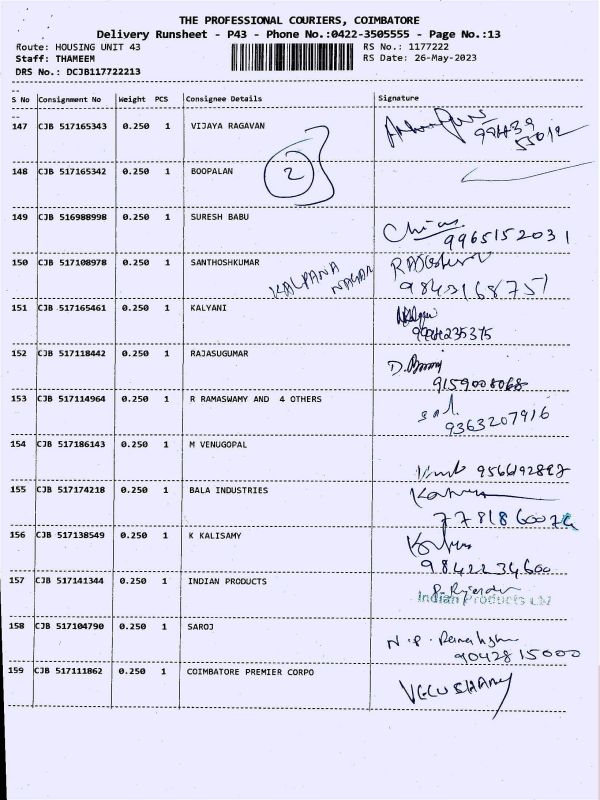 THE PROFESSIONAL COURIERS, COIMBATORE
Delivery Runsheet - P43 - Phone No.:0422-3505555 - Page No.:13
Route: HOUSING UNIT 43 RS No.: 1177222
Staff: THAMEEM RS Date: 26-May-2023
DRS No.: DCJB117722213
S No Consignment No Weight PCS Consignee Details Signature
147 CJB 517165343 0.250 1 VIJAYA RAGAVAN
148 CJB 517165342 0.250 1 BOOPALAN
2
149 CJB 516988998 0.250 1 SURESH BABU
9965152031
150 CJB 517108978 0.250 1 SANTHOSHKUMAR
KALPANA NAGAR
9843168757
151 CJB 517165461 0.250 1 KALYANI
152 CJB 517118442 0.250 1 RAJASUGUMAR
9159008068
153 CJB 517114964 0.250 1 R RAMASWAMY AND 4 OTHERS
9363207916
154 CJB 517186143 0.250 1 M VENUGOPAL
155 CJB 517174218 0.250 1 BALA INDUSTRIES
156 CJB 517138549 0.250 1 K KALISAMY
9842234600
157 CJB 517141344 0.250 1 INDIAN PRODUCTS
Indian Products Ltd
158 CJB 517104790 0.250 1 SAROJ
9042815000
159 CJB 517111862 0.250 1 COIMBATORE PREMIER CORPO